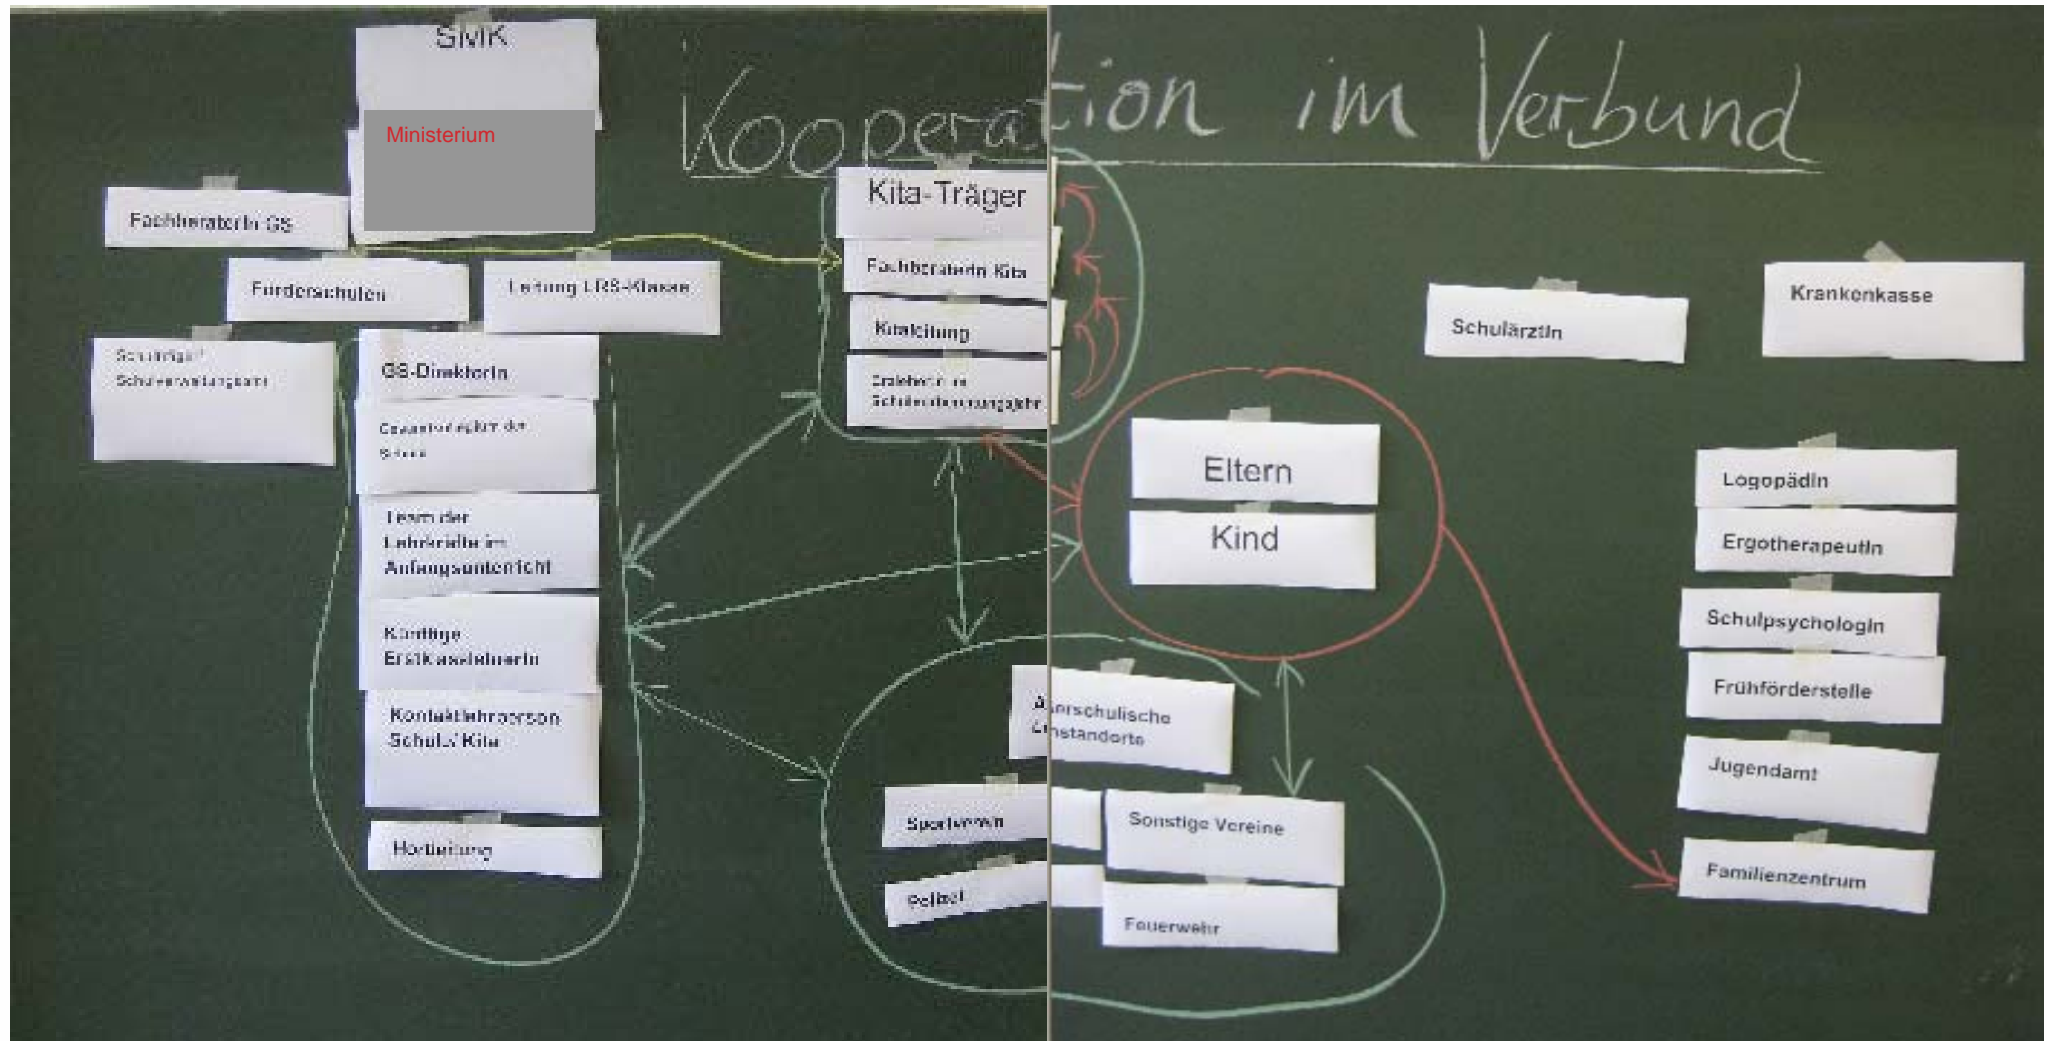 Kooperation im Verbund
SMK
Ministerium
FachberaterIn GS
Förderschulen
Leitung LRS-Klasse
Schulträger/
Schulverwaltungsamt
GS-DirektorIn
Gesamtkollegium der
Schule
Team der
Lehrkräfte im
Anfangsunterricht
Künftige
ErstklasslehrerIn
Kontaktlehrperson
Schule/ Kita
Hortleitung
Kita-Träger
FachberaterIn Kita
Kitaleitung
ErzieherIn im
Schulvorbereitungsjahr
Eltern
Kind
erschulische
nstandorte
Sportverein
Polizei
Sonstige Vereine
Feuerwehr
SchulärztIn
Krankenkasse
LogopädIn
ErgotherapeutIn
SchulpsychologIn
Frühförderstelle
Jugendamt
Familienzentrum